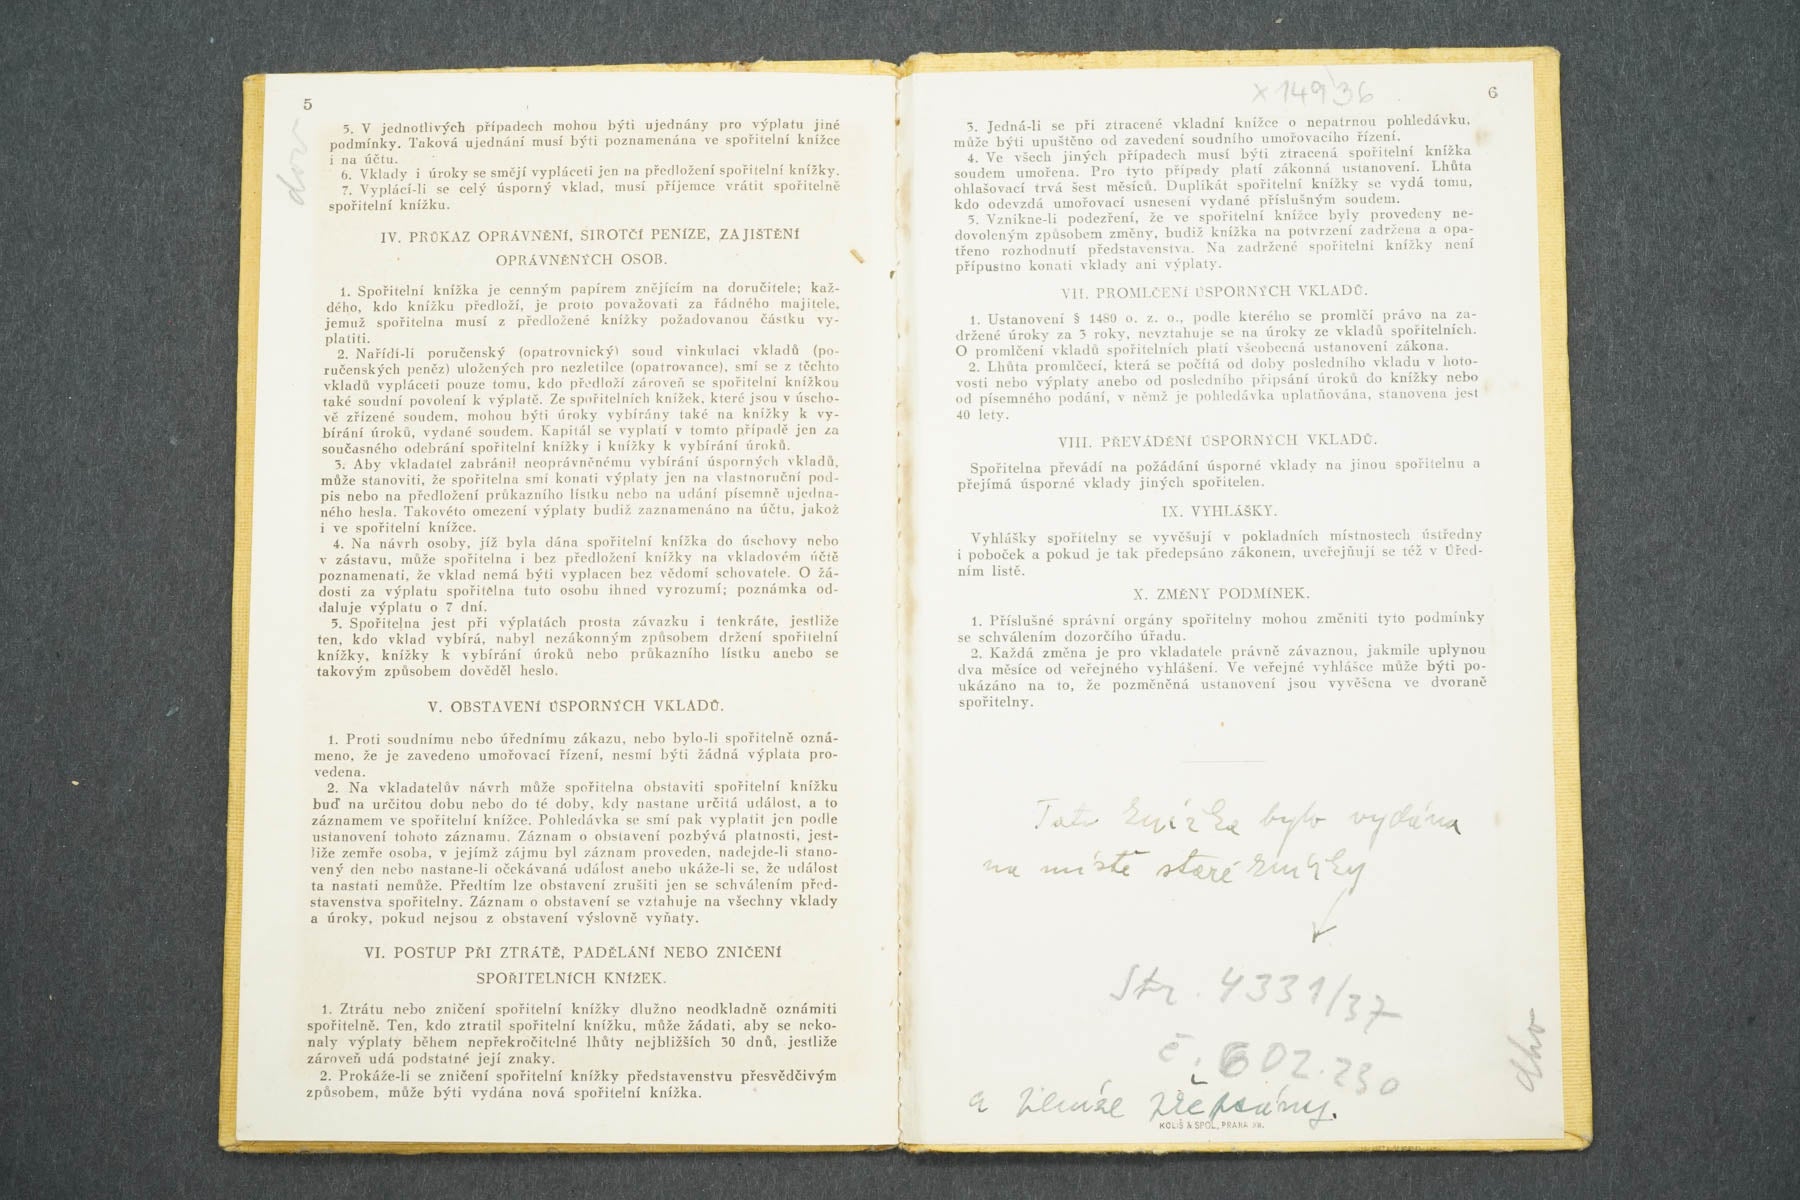 5
5. V jednotlivých případech mohou býti ujednány pro výplatu jiné
podmínky. Taková ujednání musí býti poznamenána ve spořitelní knížce
i na účtu.
6. Vklady i úroky se smějí vypláceti jen na předložení spořitelní knížky.
7. Vyplácí-li se celý úsporný vklad, musí příjemce vrátit spořitelně
spořitelní knížku.
IV. PRŮKAZ OPRÁVNĚNÍ, SIROTČÍ PENÍZE, ZAJIŠTĚNÍ
OPRÁVNĚNÝCH OSOB.
1. Spořitelní knížka je cenným papírem znějícím na doručitele; kaž-
dého, kdo knížku předloží, je proto považovati za řádného majitele,
jemuž spořitelna musí z předložené knížky požadovanou částku vy-
platiti.
2. Nařídí-li poručenský (opatrovnický) soud vinkulaci vkladů (po-
ručenských peněz) uložených pro nezletilce (opatrovance), smí se z těchto
vkladů vypláceti pouze tomu, kdo předloží zároveň se spořitelní knížkou
také soudní povolení k výplatě. Ze spořitelních knížek, které jsou v úscho-
vě zřízené soudem, mohou býti úroky vybírány také na knížky k vy-
bírání úroků, vydané soudem. Kapitál se vyplatí v tomto případě jen za
současného odebrání spořitelní knížky i knížky k vybírání úroků.
3. Aby vkladatel zabránil neoprávněnému vybírání úsporných vkladů,
může stanoviti, že spořitelna smí konati výplaty jen na vlastnoruční pod-
pis nebo na předložení průkazního lístku nebo na udání písemně ujedna-
ného hesla. Takovéto omezení výplaty budiž zaznamenáno na účtu, jakož
i ve spořitelní knížce.
4. Na návrh osoby, jíž byla dána spořitelní knížka do úschovy nebo
v zástavu, může spořitelna i bez předložení knížky na vkladovém účtě
poznamenati, že vklad nemá býti vyplacen bez vědomí schovatele. O žá-
dosti za výplatu spořitelna tuto osobu ihned vyrozumí; poznámka od-
daluje výplatu o 7 dní.
5. Spořitelna jest při výplatách prosta závazku i tenkráte, jestliže
ten, kdo vklad vybírá, nabyl nezákonným způsobem držení spořitelní
knížky, knížky k vybírání úroků nebo průkazního lístku anebo se
takovým způsobem dověděl heslo.
V. OBSTAVENÍ ÚSPORNÝCH VKLADŮ.
1. Proti soudnímu nebo úřednímu zákazu, nebo bylo-li spořitelně ozná-
meno, že je zavedeno umořovací řízení, nesmí býti žádná výplata pro-
vedena.
2. Na vkladatelův návrh může spořitelna obstaviti spořitelní knížku
buď na určitou dobu nebo do té doby, kdy nastane určitá událost, a to
záznamem ve spořitelní knížce. Pohledávka se smí pak vyplatit jen podle
ustanovení tohoto záznamu. Záznam o obstavení pozbývá platnosti, jest-
liže zemře osoba, v jejímž zájmu byl záznam proveden, nadejde-li stano-
vený den nebo nastane-li očekávaná událost anebo ukáže-li se, že událost
ta nastati nemůže. Předtím lze obstavení zrušiti jen se schválením před-
stavenstva spořitelny. Záznam o obstavení se vztahuje na všechny vklady
a úroky, pokud nejsou z obstavení výslovně vyňaty.
VI. POSTUP PŘI ZTRÁTĚ, PADĚLÁNÍ NEBO ZNIČENÍ
SPOŘITELNÍCH KNÍŽEK.
1. Ztrátu nebo zničení spořitelní knížky dlužno neodkladně oznámiti
spořitelně. Ten, kdo ztratil spořitelní knížku, může žádati, aby se neko-
naly výplaty během nepřekročitelné lhůty nejbližších 30 dnů, jestliže
zároveň udá podstatné její znaky.
2. Prokáže-li se zničení spořitelní knížky představenstvu přesvědčivým
způsobem, může býti vydána nová spořitelní knížka.
x 149 36
6
3. Jedná-li se při ztracené vkladní knížce o nepatrnou pohledávku,
může býti upuštěno od zavedení soudního umořovacího řízení.
4. Ve všech jiných případech musí býti ztracená spořitelní knížka
soudem umořena. Pro tyto případy platí zákonná ustanovení. Lhůta
ohlašovací trvá šest měsíců. Duplikát spořitelní knížky se vydá tomu,
kdo odevzdá umořovací usnesení vydané příslušným soudem.
5. Vznikne-li podezření, že ve spořitelní knížce byly provedeny ne-
dovoleným způsobem změny, budiž knížka na potvrzení zadržena a opa-
třeno rozhodnutí představenstva. Na zadržené spořitelní knížky není
přípustno konati vklady ani výplaty.
VII. PROMLČENÍ ÚSPORNÝCH VKLADŮ.
1. Ustanovení § 1480 o. z. o., podle kterého se promlčí právo na za-
držené úroky za 3 roky, nevztahuje se na úroky ze vkladů spořitelních.
O promlčení vkladů spořitelních platí všeobecná ustanovení zákona.
2. Lhůta promlčecí, která se počítá od doby posledního vkladu v hoto-
vosti nebo výplaty anebo od posledního připsání úroků do knížky nebo
od písemného podání, v němž je pohledávka uplatňována, stanovena jest
40 lety.
VIII. PŘEVÁDĚNÍ ÚSPORNÝCH VKLADŮ.
Spořitelna převádí na požádání úsporné vklady na jinou spořitelnu a
přejímá úsporné vklady jiných spořitelen.
IX. VYHLÁŠKY.
Vyhlášky spořitelny se vyvěšují v pokladních místnostech ústředny
i poboček a pokud je tak předepsáno zákonem, uveřejňují se též v Úřed-
ním listě.
X. ZMĚNY PODMÍNEK.
1. Příslušné správní orgány spořitelny mohou změniti tyto podmínky
se schválením dozorčího úřadu.
2. Každá změna je pro vkladatele právně závaznou, jakmile uplynou
dva měsíce od veřejného vyhlášení. Ve veřejné vyhlášce může býti po-
ukázáno na to, že pozměněná ustanovení jsou vyvěšena ve dvoraně
spořitelny.
Tato knížka bylo vydána
na místě staré knížky
Str. 4331/37
č. 602.230
a
KOLIŠ & SPOL., PRAHA XII.